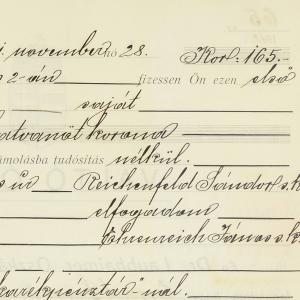 november hó 28. Kor. 165.-
2-án fizessen Ön ezen első
saját
hatvanöt korona
számolásba tudósítás nélkül.
úr Reichenfeld Sándor s.k.
elfogadom
Ehrenreich János s.k.
takarékpénztár"-nál.